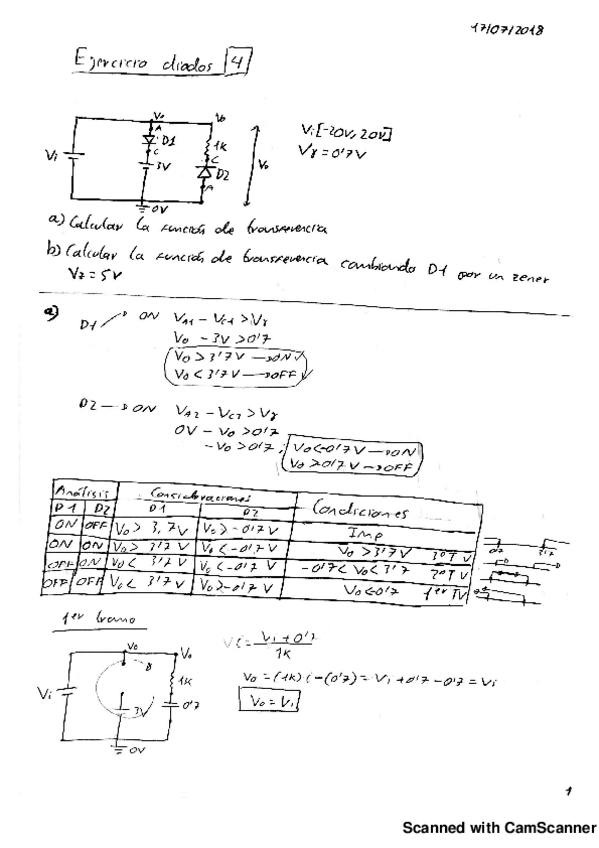 17/07/2018
Ejercicio diodos 4
Vo
Vo
A
D1
C
1K
C
D2
A
Vi
3V
Vo
0V
Vi[-20V, 20V]
Vγ = 0'7V
a) Calcular la función de transferencia
b) Calcular la función de transferencia cambiando D1 por un zener
Vz = 5V
a)
D1 → ON VA1 - VC1 > Vγ
Vo - 3V > 0'7
Vo > 3'7V → ON
Vo < 3'7V → OFF
D2 → ON VA2 - VC2 > Vγ
0V - Vo > 0'7
-Vo > 0'7; Vo < -0'7V → ON
Vo > 0'7V → OFF
Análisis Consideraciones Condiciones
D1 D2 D1 D2
ON OFF Vo > 3,7V Vo > -0'7V Imp
ON ON Vo > 3'7V Vo < -0'7V Vo > 3'7V 3º TV
OFF ON Vo < 3'7V Vo < -0'7V -0'7 < Vo < 3'7 2º TV
OFF OFF Vo < 3'7V Vo > -0'7V Vo < 0'7 1er TV
1er tramo
Vo
Vo
Vi
1K
3V
0'7
0V
Vi = Vi + 0'7 / 1K
Vo = (1K) i - (0'7) = Vi + 0'7 - 0'7 = Vi
Vo = Vi
1
Scanned with CamScanner